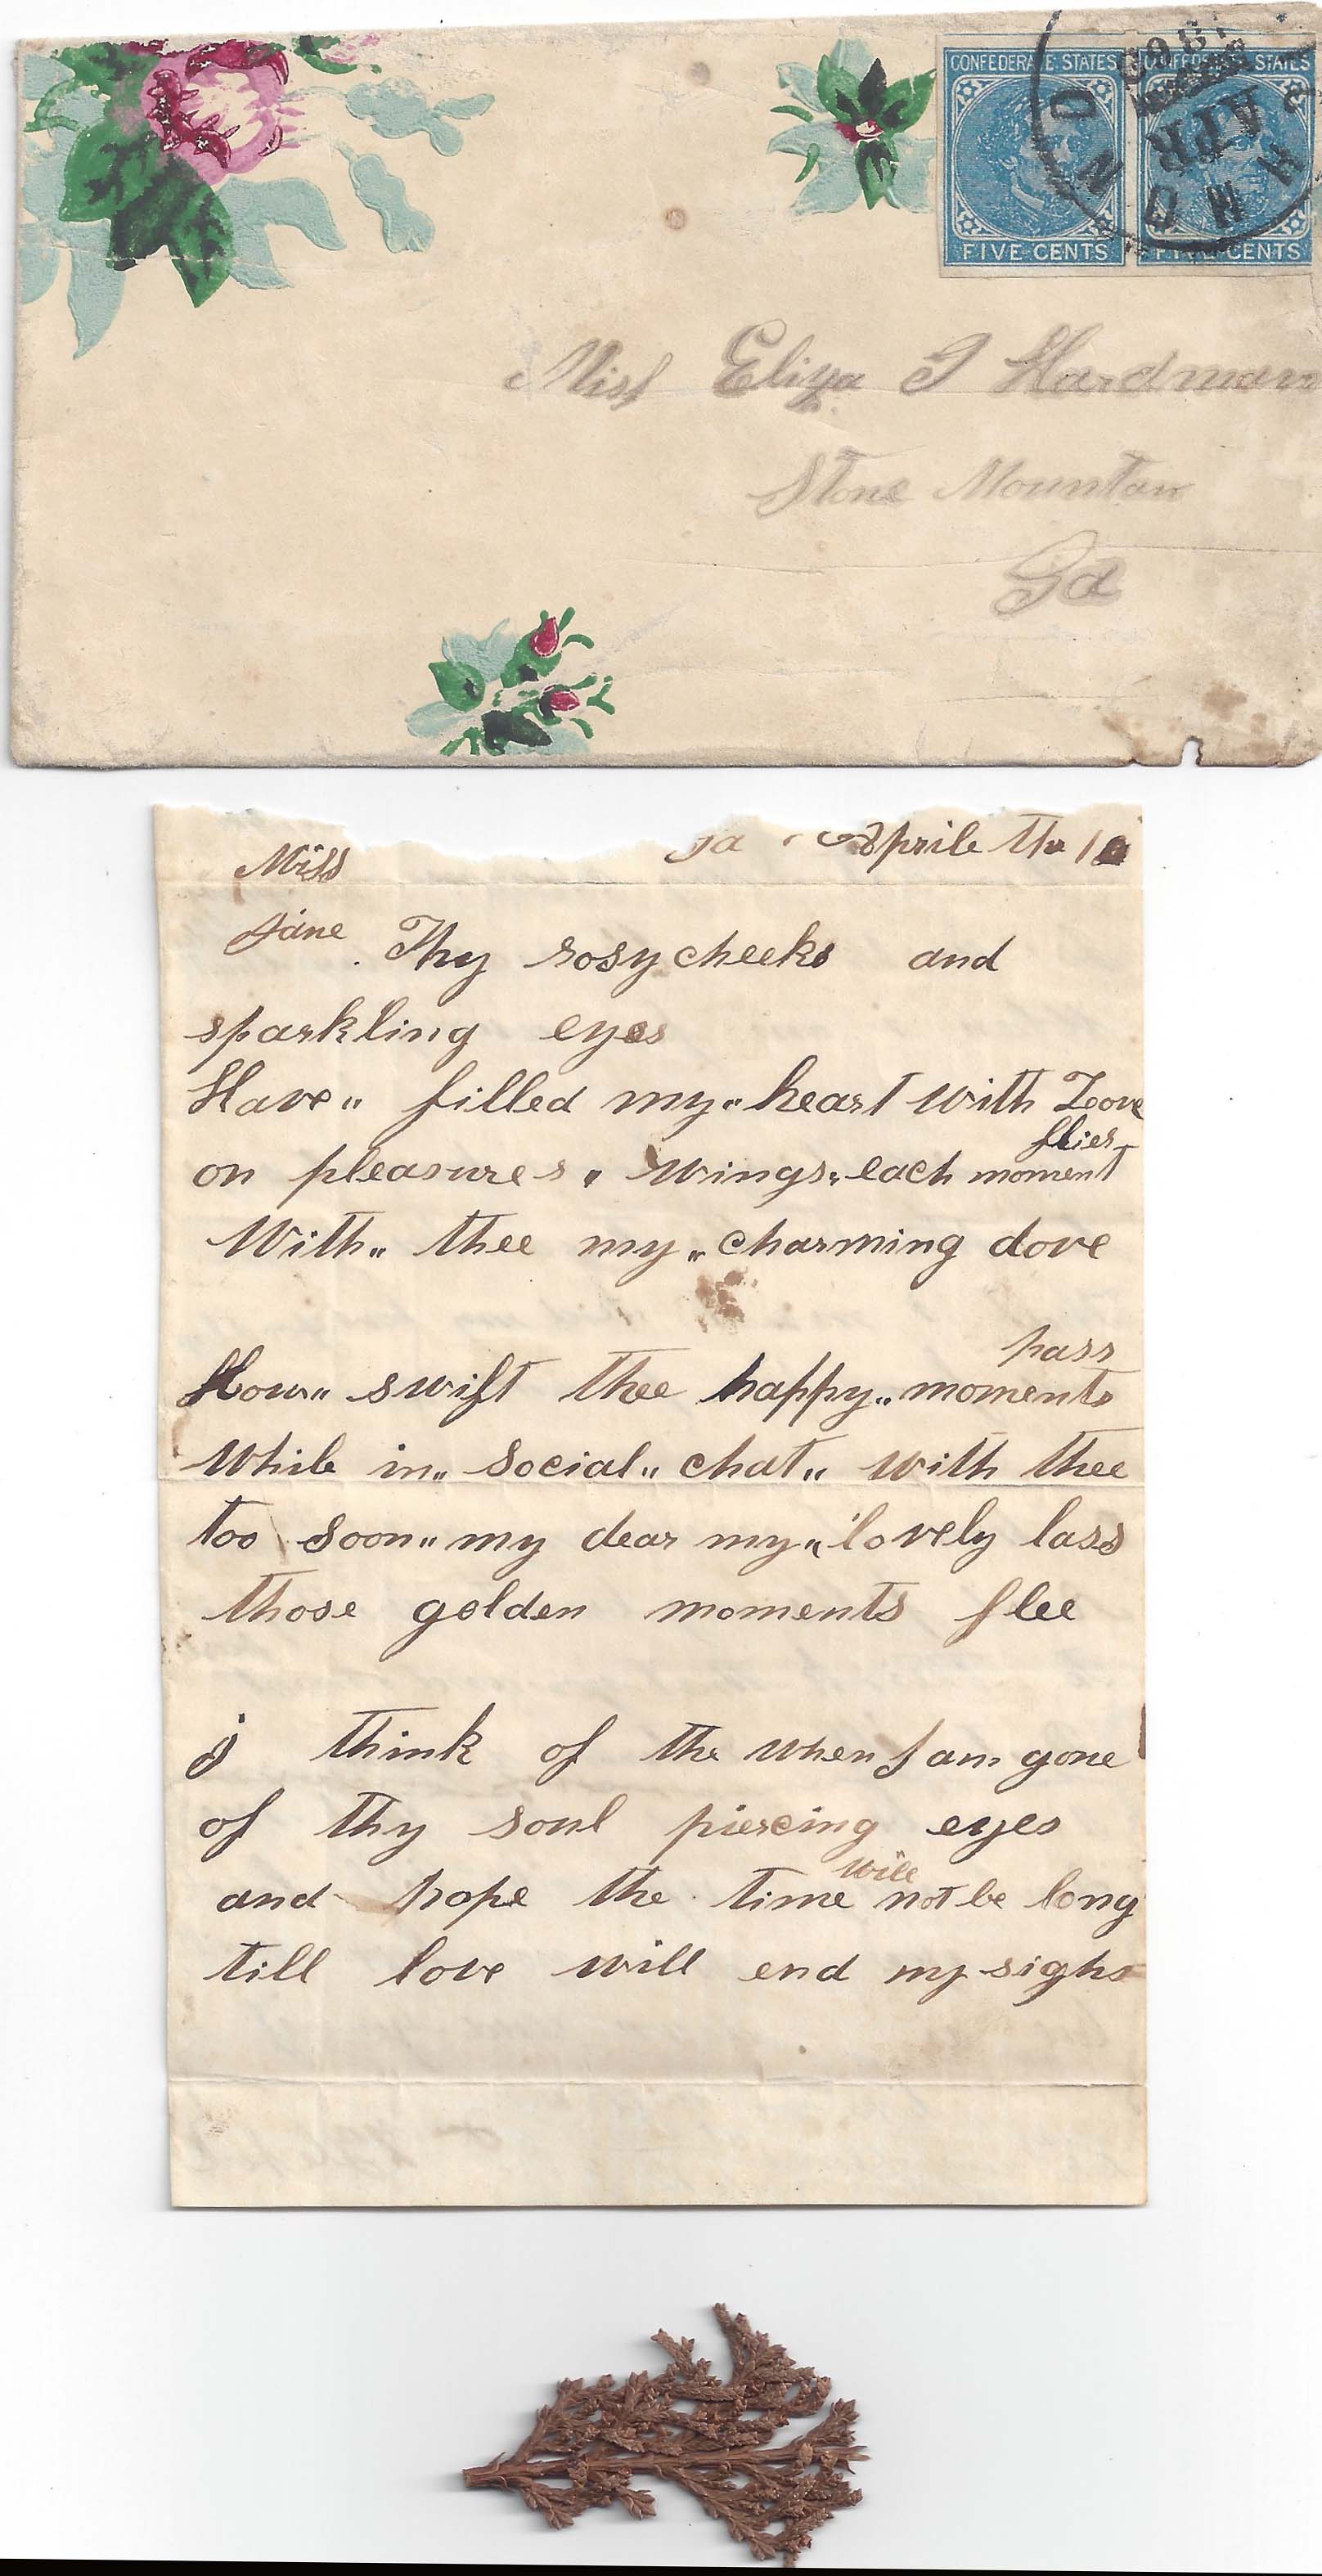 CONFEDERATE STATES CONFEDERATE STATES
FIVE CENTS FIVE CENTS
APR
Miss Eliza J Hardman
Stone Mountan
Ga
Aprile the
Miss
Jane. Thy rosy cheeks and
sparkling eyes
Have„ filled my„ heart with Love
flies
on pleasures„ wings„ each moment
With„ thee my„ charming dove
pass
How„ swift thee happy„ moments
While in„ social„ chat„ with thee
too soon„ my dear my„ lovely lass
those golden moments flee
i think of the when I am gone
of thy soul piercing eyes
will
and hope the time not be long
till love will end my sighs